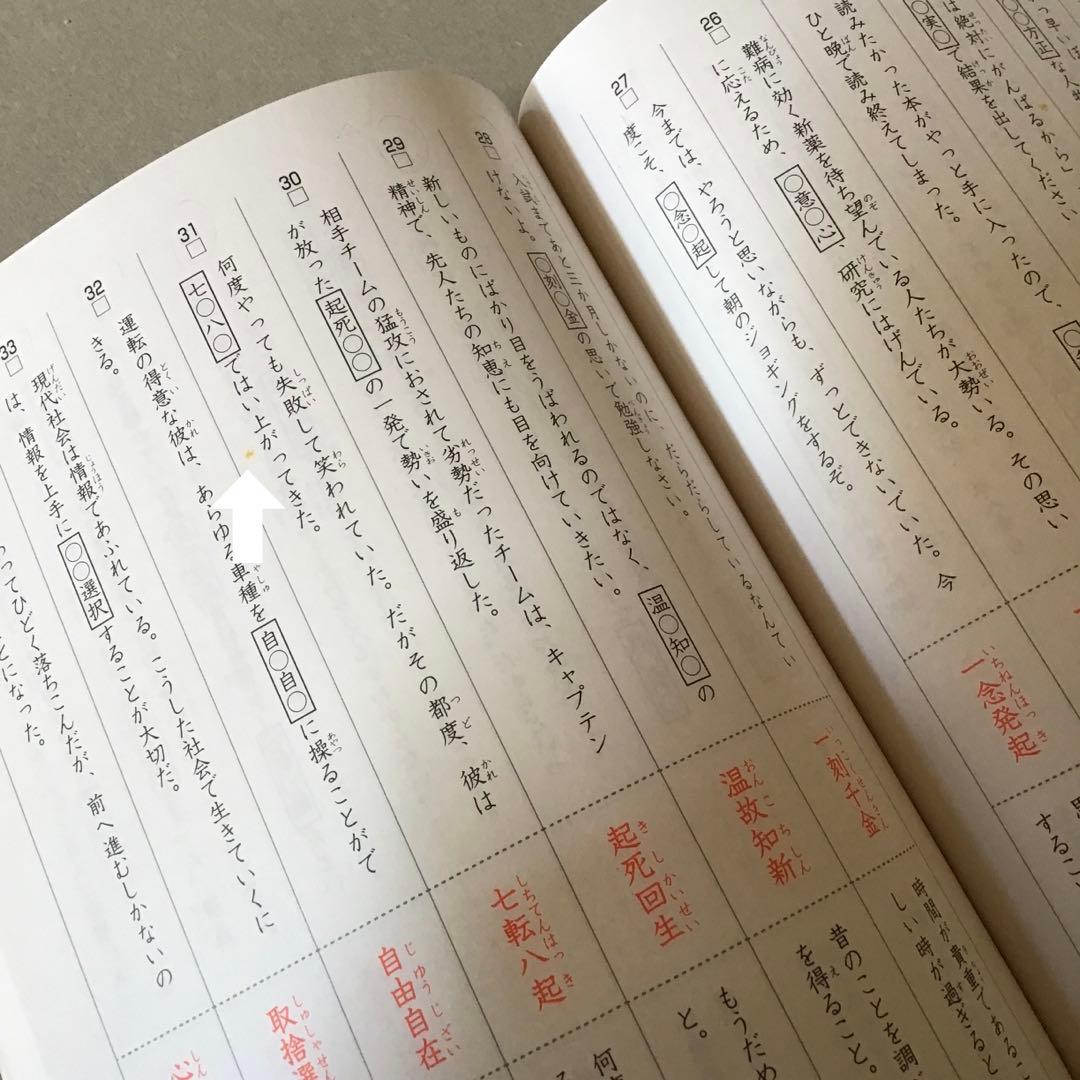 っ早いほ
○○方正な人物
は絶対にがんばるから」
○実○で結果を出してください
読みたかった本がやっと手に入ったので、
ひと晩で読み終えてしまった。
26
難病に効く新薬を待ち望んでいる人たちが大勢いる。その思い
に応えるため、○意○心、研究にはげんでいる。
27
今までは、やろうと思いながらも、ずっとできないでいた。今
度こそ、○念○起して朝のジョギングをするぞ。
一念発起
いちねんほっき
28
入試まであと三か月しかないのに、だらだらしているなんてい
けないよ。○刻○金の思いで勉強しなさい。
一刻千金
いっこくせんきん
時間が貴重であること
しい時が過ぎると
29
新しいものにばかり目をうばわれるのではなく、温○知○の
精神で、先人たちの知恵にも目を向けていきたい。
温故知新
おんこちしん
昔のことを調
を得ること。
30
相手チームの猛攻におされて劣勢だったチームは、キャプテン
が放った起死○○の一発で勢いを盛り返した。
起死回生
きしかいせい
もうだめ
と。
31
何度やっても失敗して笑われていた。だがその都度、彼は
七○八○ではい上がってきた。
七転八起
しちてんはっき
何
32
運転の得意な彼は、あらゆる車種を自○自○に操ることがで
きる。
自由自在
じゆうじざい
33
現代社会は情報であふれている。こうした社会で生きていくに
は、情報を上手に○○選択することが大切だ。
取捨選
しゅしゃせん
ってひどく落ちこんだが、前へ進むしかないの
とになった。
心
しん